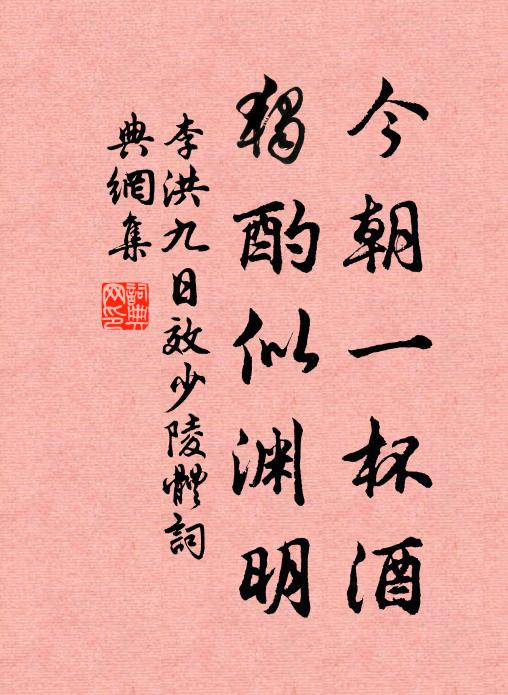 今朝一杯酒
獨酌似渊明
李洪九日效少陵體詞
典網集
詞典网印